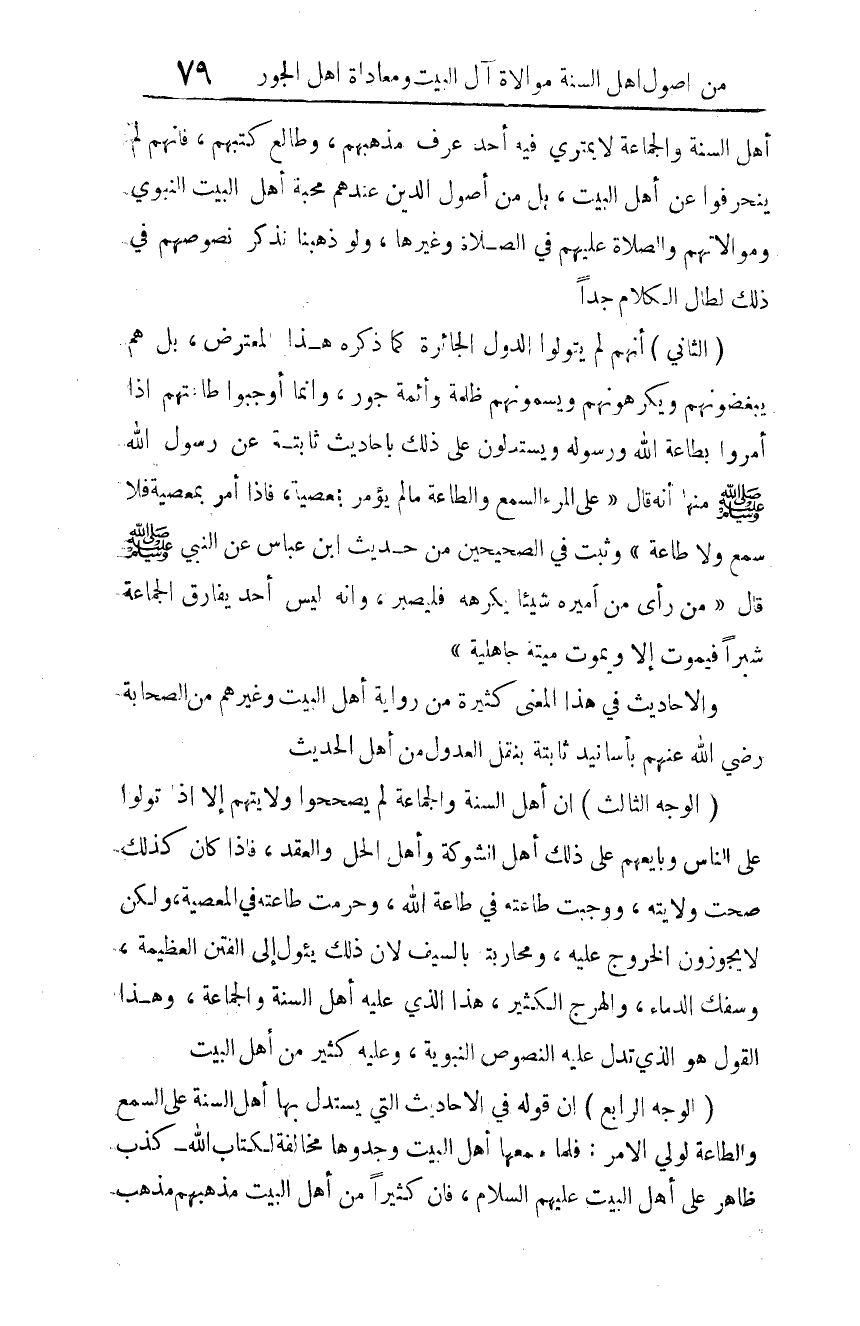 من اصول اهل السنة موالاة آل البيت ومعاداة اهل الجور ٧٩
أهل السنة والجماعة لا يمتري فيه أحد عرف مذهبهم ، وطالع كتبهم ، فانهم لم
ينحرفوا عن أهل البيت ، بل من أصول الدين عندهم محبة أهل البيت النبوي
وموالاتهم والصلاة عليهم في الصلاة وغيرها ، ولو ذهبنا نذكر نصوصهم في
ذلك لطال الكلام جداً
( الثاني ) أنهم لم يتولوا الدول الجائرة كما ذكره هذا المعترض ، بل هم
يبغضونهم ويكرهونهم ويسمونهم ظلمة وأئمة جور ، وانما أوجبوا طاعتهم اذا
أمروا بطاعة الله ورسوله ويستدلون على ذلك باحاديث ثابتة عن رسول الله
ﷺ منها أنه قال « على المرء السمع والطاعة مالم يؤمر بمعصية ، فاذا أمر بمعصية فلا
سمع ولا طاعة » وثبت في الصحيحين من حديث ابن عباس عن النبي ﷺ
قال « من رأى من أميره شيئا يكرهه فليصبر ، وانه ليس أحد يفارق الجماعة
شبراً فيموت إلا ويموت ميتة جاهلية »
والاحاديث في هذا المعنى كثيرة من رواية أهل البيت وغيرهم من الصحابة
رضي الله عنهم بأسانيد ثابتة بنقل العدول من أهل الحديث
( الوجه الثالث ) ان أهل السنة والجماعة لم يصححوا ولايتهم إلا اذا تولوا
على الناس وبايعهم على ذلك أهل الشوكة وأهل الحل والعقد ، فاذا كان كذلك
صحت ولايته ، ووجبت طاعته في طاعة الله ، وحرمت طاعته في المعصية ، ولكن
لا يجوزون الخروج عليه ، ومحاربته بالسيف لان ذلك يئول إلى الفتن العظيمة ،
وسفك الدماء ، والهرج الكثير ، هذا الذي عليه أهل السنة والجماعة ، وهذا
القول هو الذي تدل عليه النصوص النبوية ، وعليه كثير من أهل البيت
( الوجه الرابع ) ان قوله في الاحاديث التي يستدل بها أهل السنة على السمع
والطاعة لولي الامر : فلما سمعها أهل البيت وجدوها مخالفة لكتاب الله ـ كذب
ظاهر على أهل البيت عليهم السلام ، فان كثيراً من أهل البيت مذهبهم مذهب